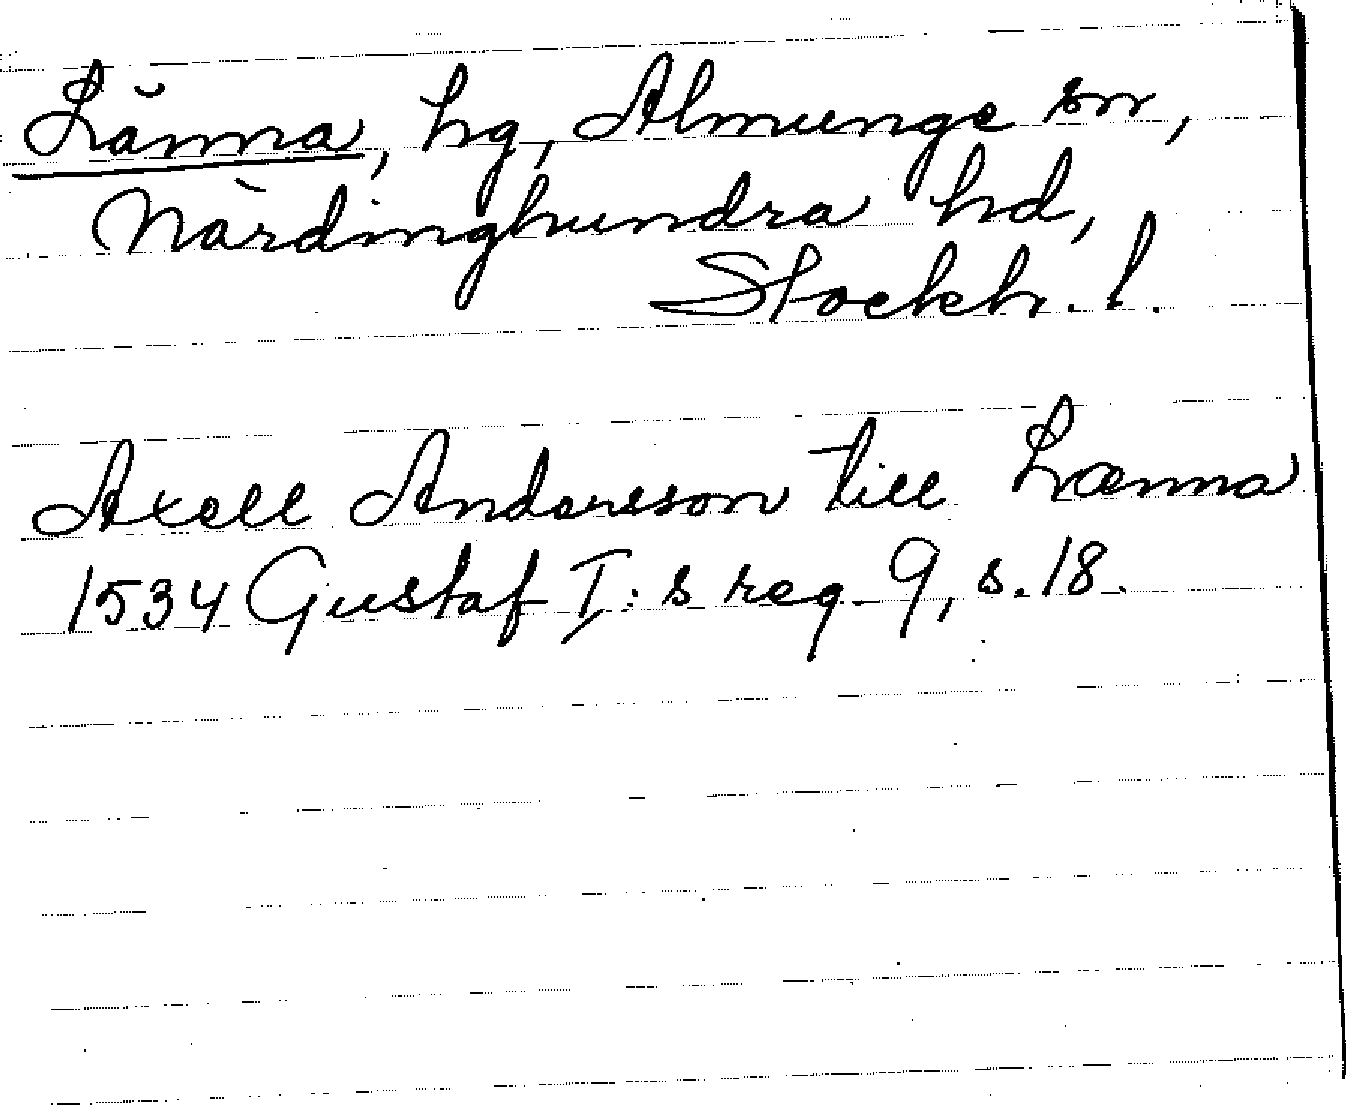 Länna, hg, Almunge sn,
Närdinghundra hd,
Stockh. l.
Axell Andersson till Lænna
1534 Gustaf I:s reg 9, s. 18.